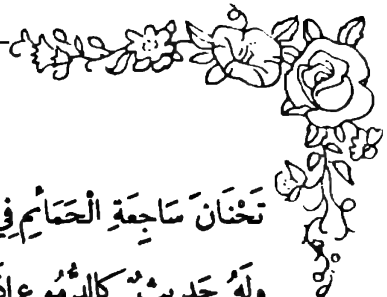 تَحْنَانَ سَاجِعَةِ الْحَمَائِمِ فِي
وَلَهُ حَدِيثٌ كَالدُّمُوعِ إِذَا